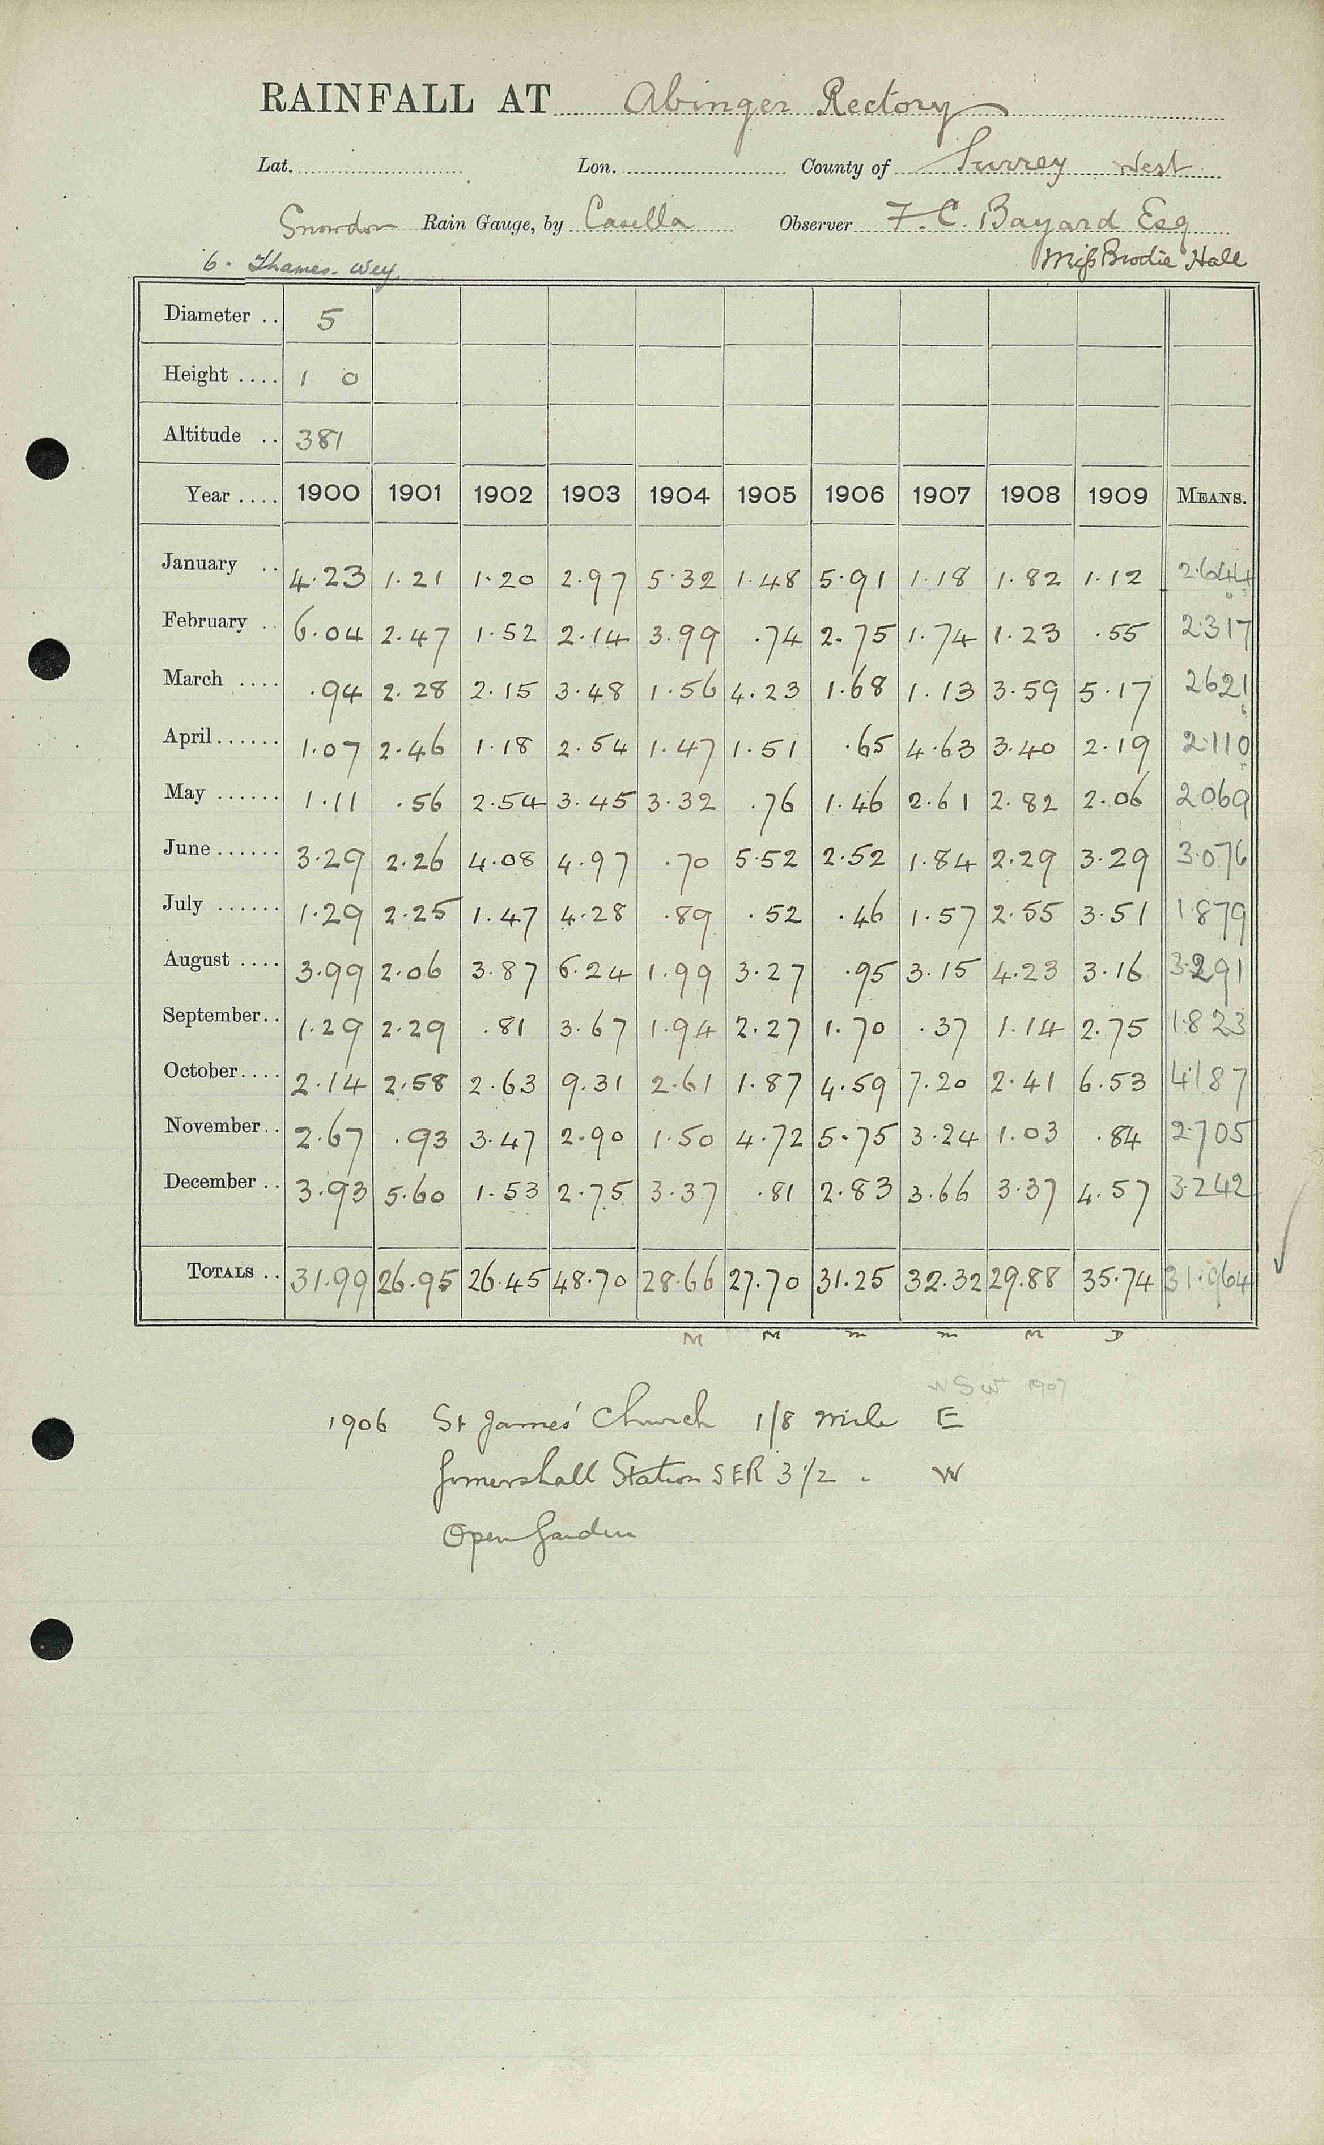 RAINFALL AT Abinger Rectory
Lat. Lon. County of Surrey West
Snowdon Rain Gauge, by Casella Observer F. C. Bayard Esq
6. Thames. Wey. Miss Brodie Hall
Diameter .. 5
Height .... 1 0
Altitude .. 381
Year .... 1900 1901 1902 1903 1904 1905 1906 1907 1908 1909 MEANS.
January .. 4.23 1.21 1.20 2.97 5.32 1.48 5.91 1.18 1.82 1.12 2.644
February .. 6.04 2.47 1.52 2.14 3.99 .74 2.75 1.74 1.23 .55 2.317
March .... .94 2.28 2.15 3.48 1.56 4.23 1.68 1.13 3.59 5.17 2621
April...... 1.07 2.46 1.18 2.54 1.47 1.51 .65 4.63 3.40 2.19 2.110
May ...... 1.11 .56 2.54 3.45 3.32 .76 1.46 2.61 2.82 2.06 2069
June...... 3.29 2.26 4.08 4.97 .70 5.52 2.52 1.84 2.29 3.29 3.076
July ...... 1.29 2.25 1.47 4.28 .89 .52 .46 1.57 2.55 3.51 1.879
August .... 3.99 2.06 3.87 6.24 1.99 3.27 .95 3.15 4.23 3.16 3.291
September.. 1.29 2.29 .81 3.67 1.94 2.27 1.70 .37 1.14 2.75 1.823
October.... 2.14 2.58 2.63 9.31 2.61 1.87 4.59 7.20 2.41 6.53 4187
November.. 2.67 .93 3.47 2.90 1.50 4.72 5.75 3.24 1.03 .84 2705
December .. 3.93 5.60 1.53 2.75 3.37 .81 2.83 3.66 3.37 4.57 3.242
TOTALS .. 31.99 26.95 26.45 48.70 28.66 27.70 31.25 32.32 29.88 35.74 31.964
M M m m M D
WSW 1907
1906 St James' Church 1/8 mile E
Gomershall Station SER 3 1/2 " W
Open Garden